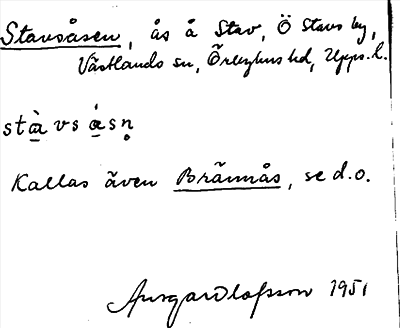 Stavsåsen, ås å Stav, Ö Stavs by,
Västlands sn, Örbyhus hd, Upps. l.
stà̱vsǻ̱sn̥
Kallas även Brännås, se d.o.
Ansgar Olofsson 1951